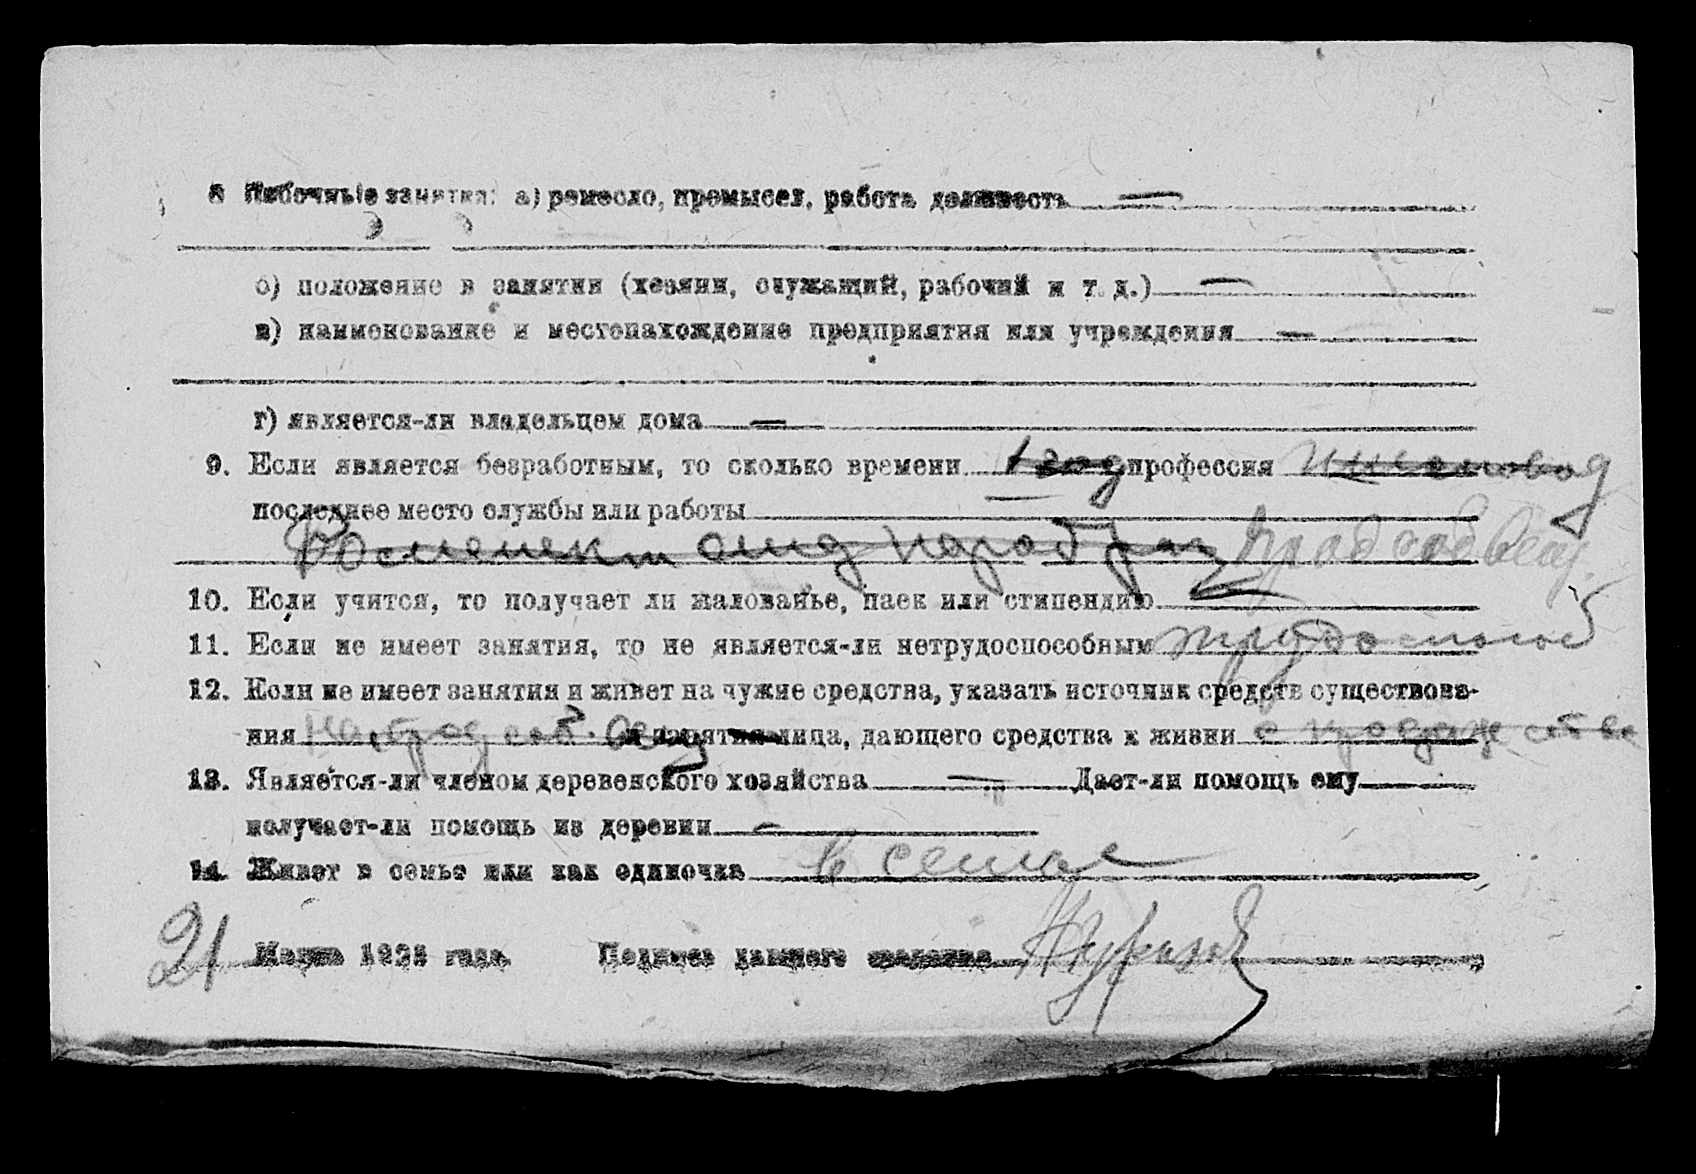 8 Побочные занятия: а) ремесло, промысел, работа должность —
б) положение в занятии (хозяин, служащий, рабочий и т. д.) —
в) наименование и местонахождение предприятия или учреждения —
г) является-ли владельцем дома —
9. Если является безработным, то сколько времени 1 год профессия
последнее место службы или работы
10. Если учится, то получает ли жалованье, паек или стипендию —
11. Если не имеет занятия, то не является-ли нетрудоспособным трудоспособ
12. Если не имеет занятия и живет на чужие средства, указать источник средств существова-
ния и занятия лица, дающего средства к жизни
13. Является-ли членом деревенского хозяйства — Дает-ли помощь ему
получает-ли помощь из деревни —
14. Живет в семье или как одиночка в семье
21 Марта 1923 года Подпись давшего сведения